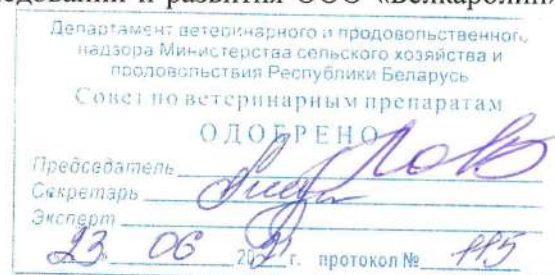 и развития ООО «Белкаролин»
Департамент ветеринарного и продовольственного
надзора Министерства сельского хозяйства и
продовольствия Республики Беларусь
Совет по ветеринарным препаратам
ОДОБРЕНО
Председатель
Секретарь
Эксперт
23. 06 2021 г. протокол № 115